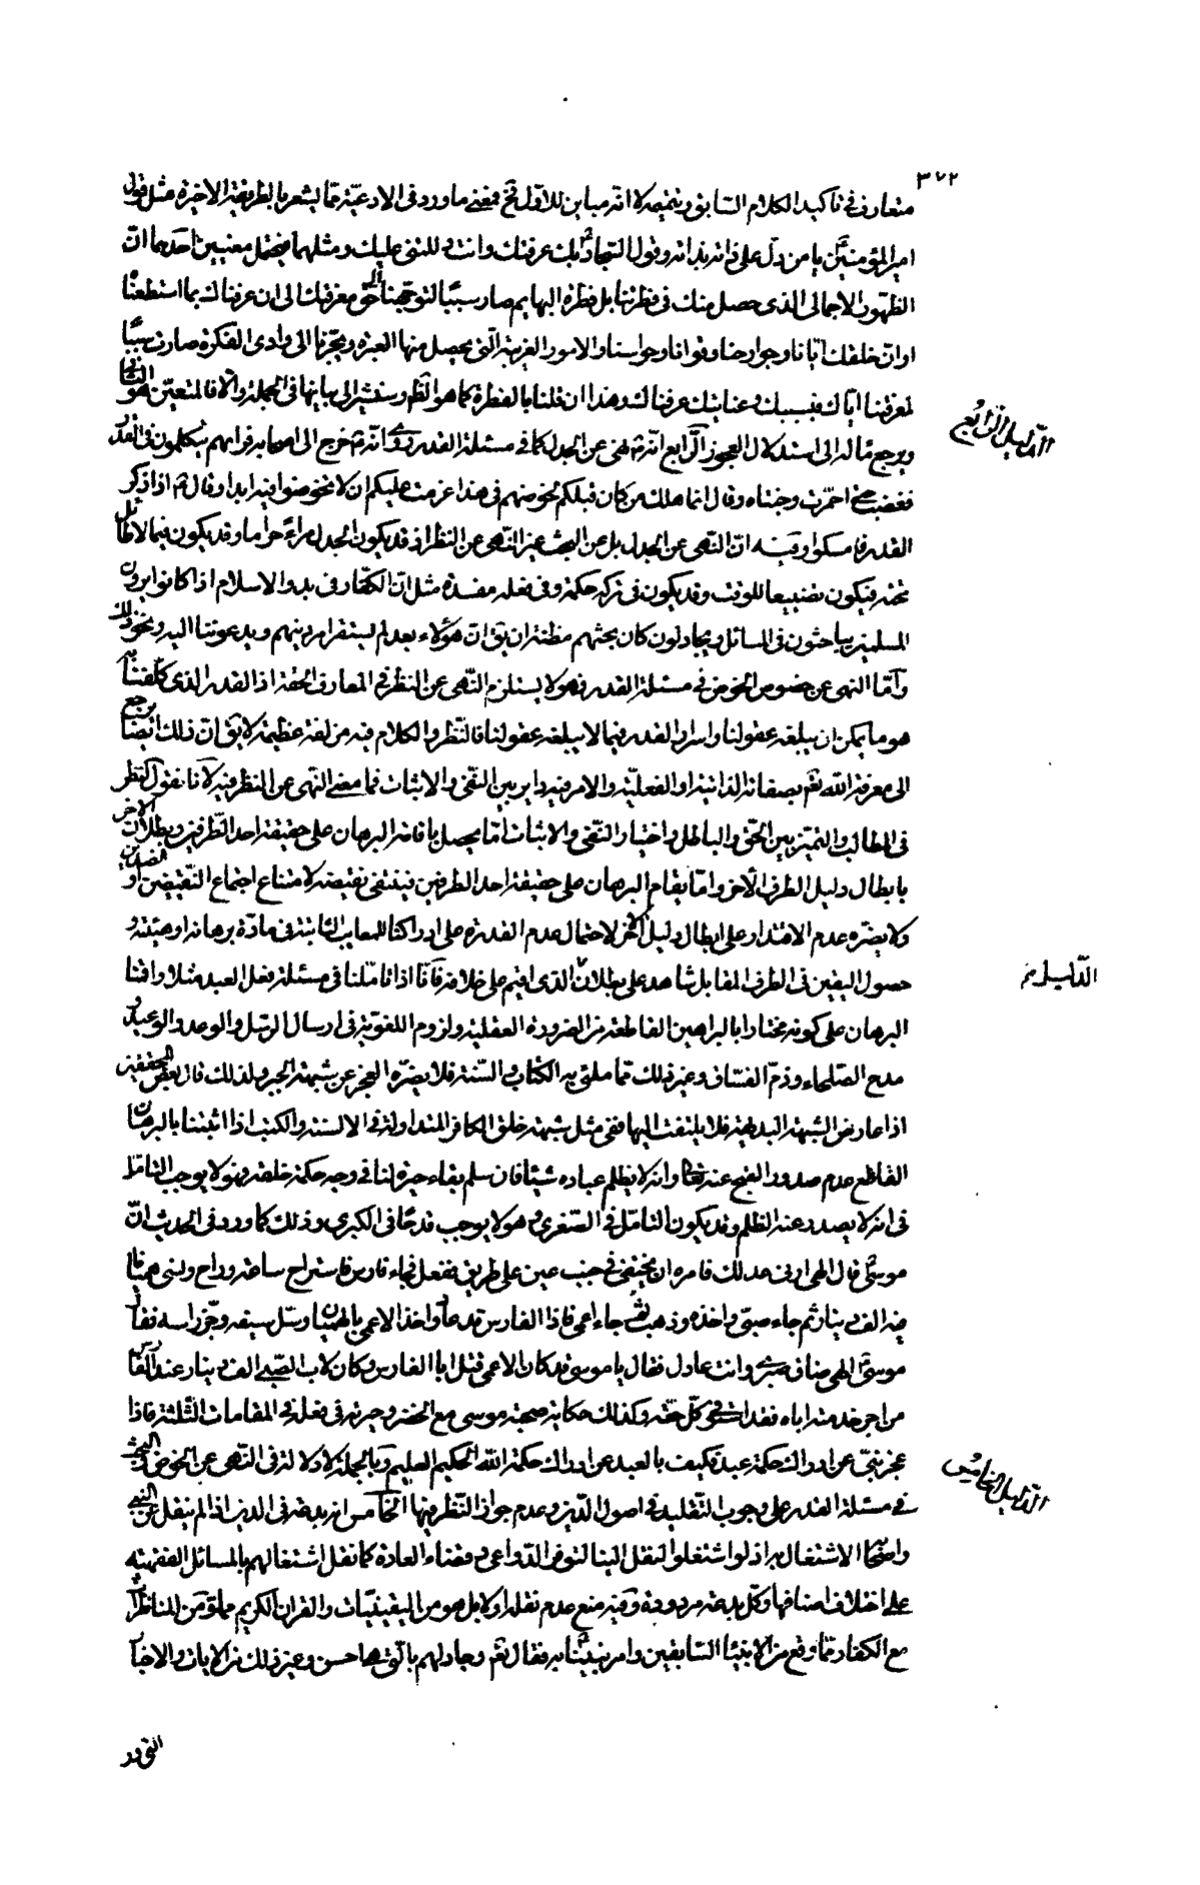 ٣٧٢
متعارف في تاكيد الكلام السابق وتتميمه لا انه مباين للاول فح فمعنى ما ورد في الادعية مما يشعر بالطريقة الاخيرة مثل قول
امير المؤمنين يا من دل على ذاته بذاته وقول السجاد بك عرفتك وانت دللتنى عليك ومثلهما يحتمل معنيين احدهما ان
الظهور الاجمالى الذى حصل منك في فطرتنا بل فطرة البهايم صار سببا لتوجهنا الى حق معرفتك الى ان عرفناك بما استطعنا
او ان خلقك ايانا وجوارحنا وقوانا وحواسنا والامور الغريبة التى يحصل منها العبرة ويجرنا الى وادى الفكرة صارت سببا
لمعرفتنا اياك فبسببك وعنايتك عرفناك هذا ان قلنا بالفطرة كما هو الظ وسنشير الى بيانها في الجملة والا فالمتعين هو الثانى
ويرجع مآله الى استدلال العجوز الرابع انه نهى عن الجدل كما في مسئلة القدر روى انه خرج الى اصحابه فراهم يتكلمون في القدر
فغضب حتى احمرت وجنتاه وقال انما هلك من كان قبلكم لخوضهم في هذا عزمت عليكم ان لا تخوضوا فيه ابدا وقال اذا ذكر
القدر فامسكوا وفيه ان النهى عن الجدل بل عن البحث غير النهى عن النظر اذ قد يكون الجدل مراء حراما وقد يكون فيما لا طائل
تحته فيكون تضييعا للوقت وقد يكون في تركه حكمة وفى فعله مفسدة مثل ان الكفار في بدو الاسلام اذا كانوا يرون
المسلمين يباحثون في المسائل ويجادلون كان بحثهم مظنة ان يق ان هؤلاء بعد لم يستقر امر دينهم ويدعوننا اليه ونحو ذلك
واما النهى عن خصوص الخوض في مسئلة القدر فهو لا يستلزم النهى عن النظر في المعارف الحقة اذ القدر الذى كلفنا به
هو ما يمكن ان يبلغه عقولنا واسرار القدر فيما لا يبلغه عقولنا فالنظر والكلام فيه مزلقة عظيمة لا يق ان ذلك ايضا يرجع
الى معرفة الله تع بصفاته الذاتية او الفعلية والامر فيه داير بين النفى والاثبات فما معنى النهى عن النظر فيه لانا نقول النظر
في المطالب والتميز بين الحق والباطل واختيار النفى والاثبات اما يحصل باقامة البرهان على حقيقة احد الطرفين وبطلان الاخر
بابطال دليل الطرف الاخر واما يقام البرهان على حقيقة احد الطرفين فينتفى نقيضه لامتناع اجتماع النقيضين او الضدين
ولا يضره عدم الاقتدار على ابطال دليل الاخر لاحتمال عدم القدرة على ادراكنا للمعايب الثابتة في مادة برهانه او هيئته و
حصول اليقين في الطرف المقابل شاهد على بطلان الذى اقيم على خلافه فانا اذا تاملنا في مسئلة فعل العبد مثلا واقمنا
البرهان على كونه مختارا بالبراهين القاطعة من الضرورة العقلية ولزوم اللغوية في ارسال الرسل والوعد والوعيد و
مدح الصلحاء وذم الفساق وغير ذلك مما ملئ به الكتاب والسنة فلا يضره العجز عن شبهة الجبر ولذلك قال بعض المحققين
اذا عارض الشبهة البديهة فلا يلتفت اليها ففى مثل شبهة خلق الكافر المتداولة في الالسنة والكتب اذا اثبتنا بالبرهان
القاطع عدم صدور القبح عنه تعالى وانه لا يظلم عباده شيئا فان سلم بقاء حيرة لنا في وجه حكمة خلقه فهو لا يوجب التامل
في انه لا يصدر عنه الظلم وقد يكون التامل في الصغرى وهو لا يوجب قدحا في الكبرى وذلك كما ورد في الحديث ان
موسى قال الهى ارنى عدلك فامره ان يختفى في جنب عين على طريق ففعل فجاء فارس فاستراح ساعة وراح ونسى هميانا
فيه الف دينار ثم جاء صبى واخذه وذهب ثم جاء اعمى فاذا الفارس قد عاد واخذ الاعمى بالهميان وسل سيفه وجز راسه فقال
موسى الهى ضاق صبرى وانت عادل فقال يا موسى قد كان الاعمى قتل ابا الفارس وكان لاب الصبى الف دينار عند الفارس
من اجر خدمته اياه فقد استوفى كل حقه وكذلك حكاية صحبة موسى مع الخضر وحيرته في فعله في المقامات الثلثة فاذا
عجز نبى عن ادراك حكمة عبد فكيف بالعبد عن ادراك حكمة الله الحكيم العليم وبالجملة لا دلالة في النهى عن الخوض والبحث
في مسئلة القدر على وجوب التقليد في اصول الدين وعدم جواز النظر فيها الخامس انه بدعة في الدين اذ لم ينقل عن النبى
واصحابه الاشتغال به اذ لو اشتغلوا لنقل الينا لتوفر الدواعى وقضاء العادة كما نقل اشتغالهم بالمسائل الفقهية
على اختلاف اصنافها وكل بدعة مردودة وفيه منع عدم نقله اولا بل هو من اليقينيات والقران الكريم مملو من المناظرات
مع الكفار مما وقع من الانبياء السابقين وامر نبينا به فقال تع وجادلهم بالتى هى احسن وغير ذلك من الايات والاخبار
الدليل الرابع
الدليل
الدليل الخامس